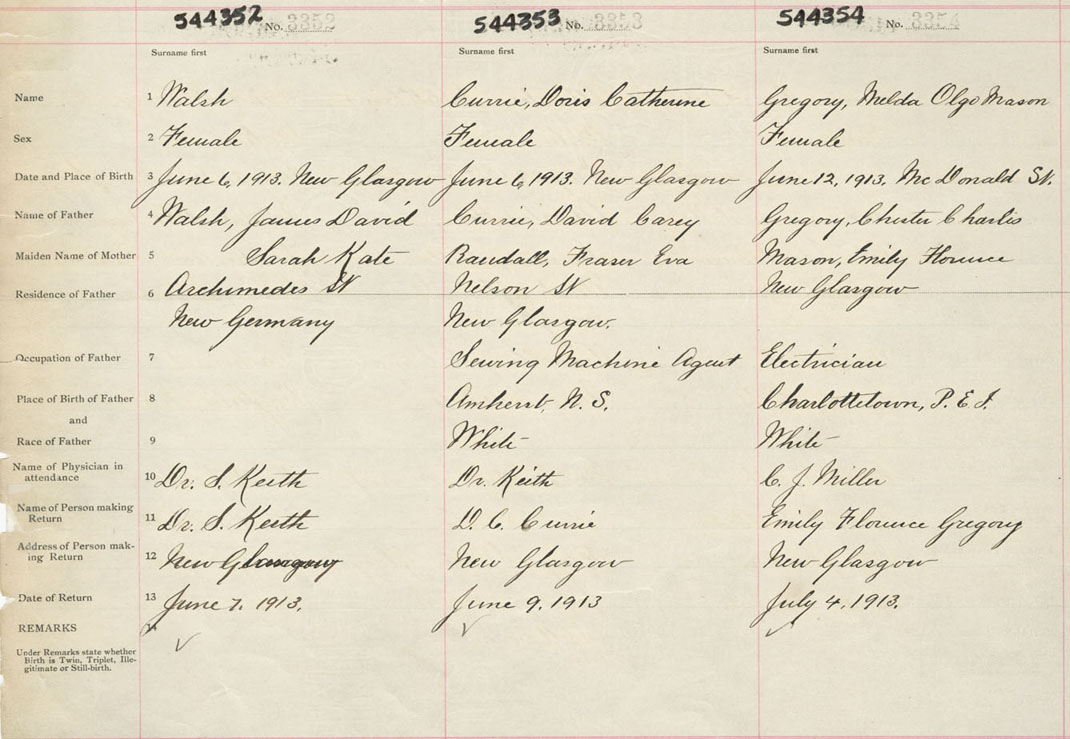 544352 No. 3352 544353 No. 3353 544354 No. 3354
Surname first Surname first Surname first
Name 1 Walsh Currie, Doris Catherine Gregory, Melda Olga Mason
Sex 2 Female Female Female
Date and Place of Birth 3 June 6, 1913. New Glasgow June 6, 1913. New Glasgow June 12, 1913. McDonald St.
Name of Father 4 Walsh, James David Currie, David Carey Gregory, Chester Charles
Maiden Name of Mother 5 Sarah Kate Randall, Fraser Eva Mason, Emily Florence
Residence of Father 6 Archimedes St Nelson St New Glasgow
New Germany New Glasgow.
Occupation of Father 7 Sewing Machine Agent Electrician
Place of Birth of Father 8 Amherst, N. S. Charlottetown, P. E. I.
and
Race of Father 9 White White
Name of Physician in
attendance 10 Dr. S. Keith Dr. Keith C. J. Miller
Name of Person making
Return 11 Dr. S. Keith D. C. Currie Emily Florence Gregory
Address of Person mak-
ing Return 12 New Glasgow New Glasgow New Glasgow
Date of Return 13 June 7, 1913. June 9, 1913 July 4, 1913.
REMARKS 14
Under Remarks state whether
Birth is Twin, Triplet, Ille-
gitimate or Still-birth.